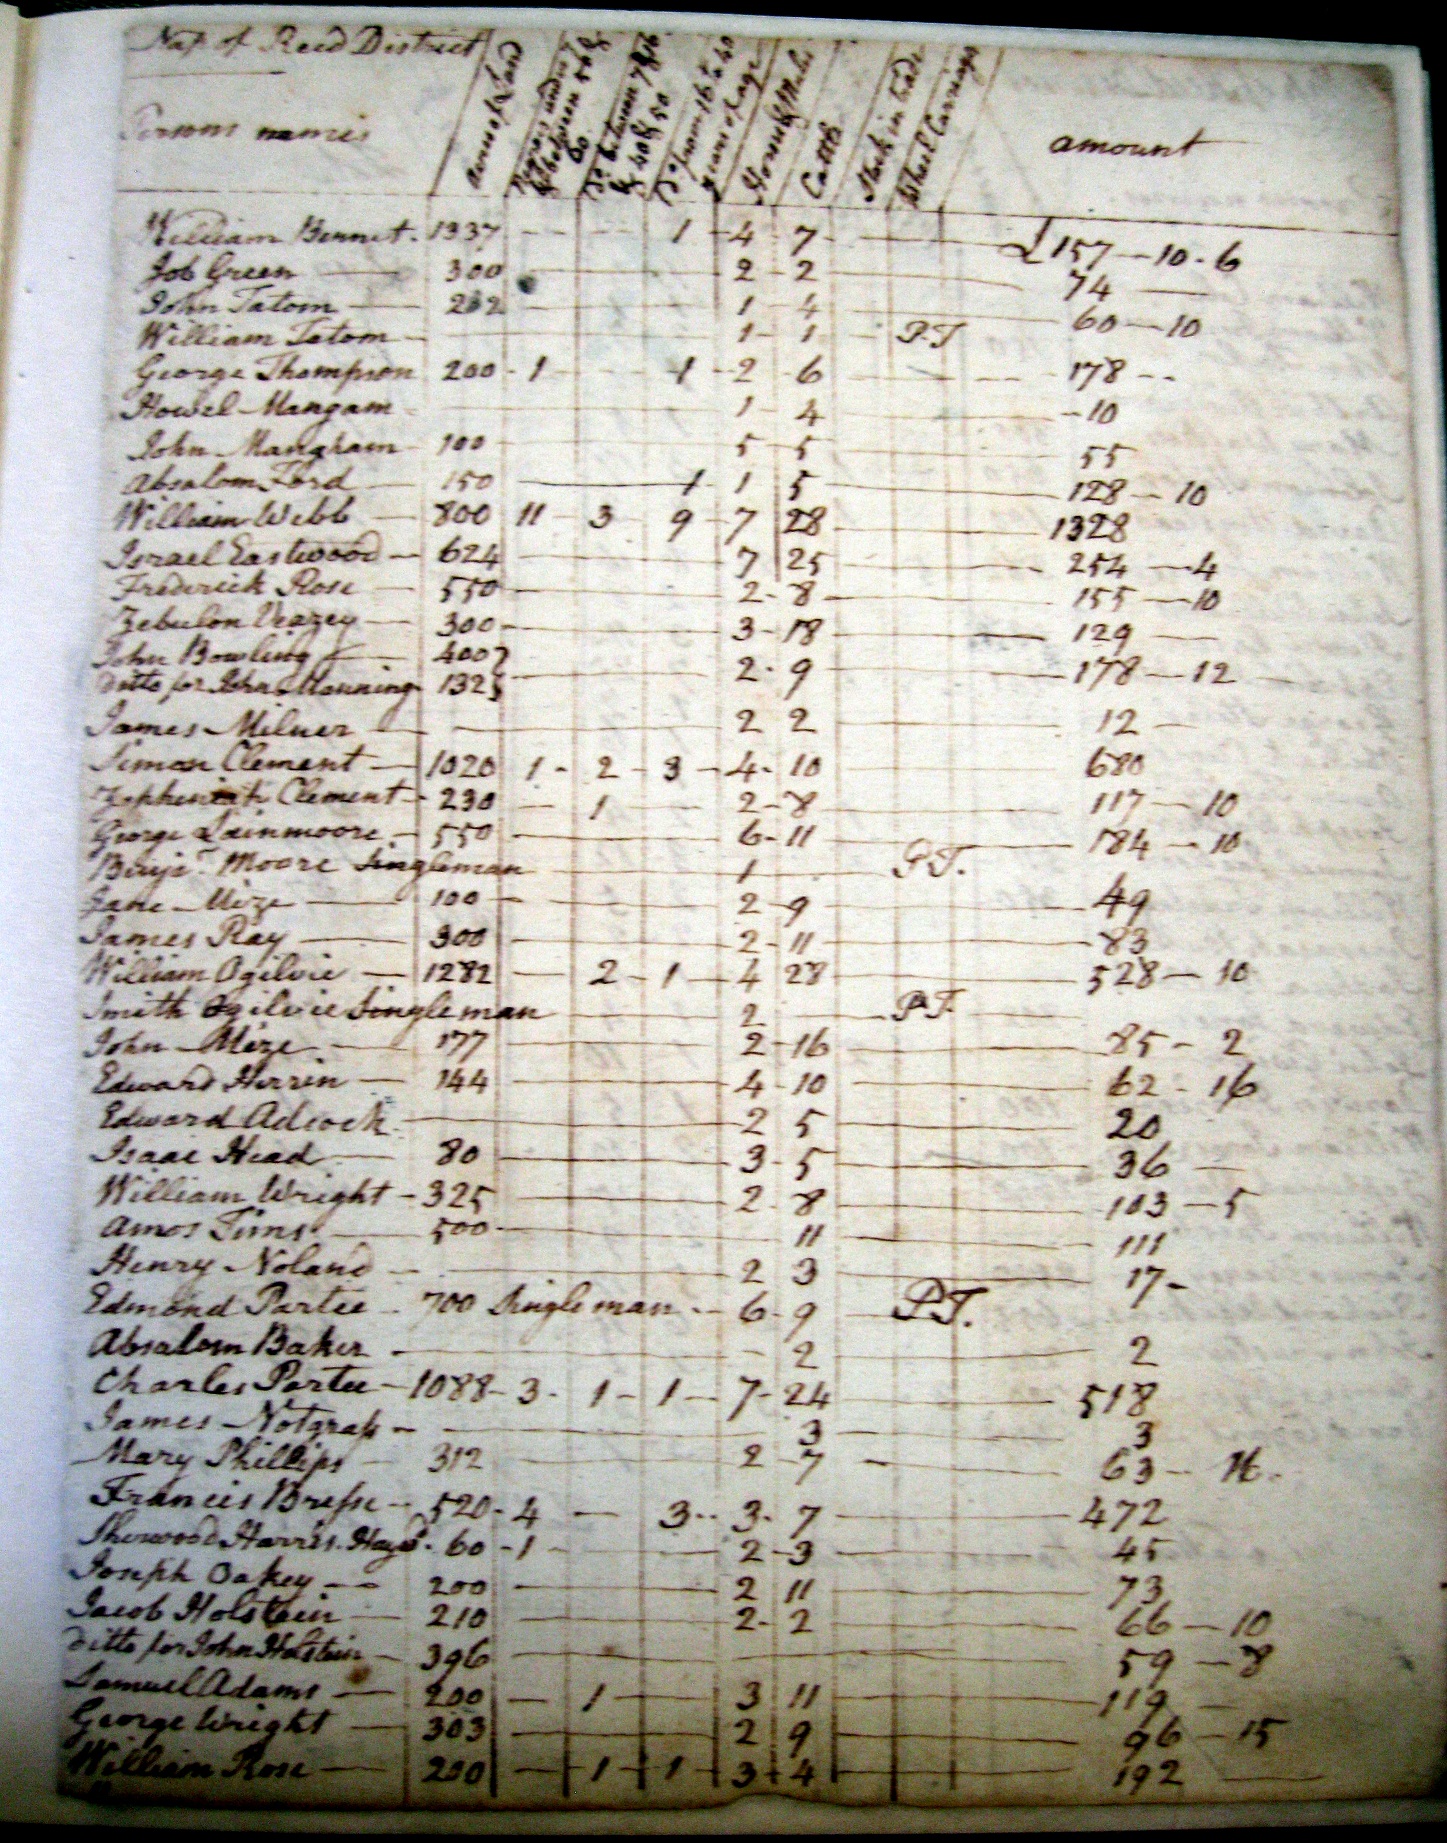 Nap of Reed District
Persons names
acres of Land
Negroes under 7 & between 50 & 60
Do. between 7 & 16 & 40 & 50
Do from 16 to 40 years of age
Horses & Mules
Cattle
Stock in trade
Wheel Carriages
amount
William Bennet. 1337 1 4 7 £157 10. 6
Job Green 300 2 2 74
John Tatom 2 1 4 60 10
William Tatom 1 1 P.T
George Thompson 200 1 1 2 6 178
Howel Mangam 1 4 10
John Mangham 100 5 5 55
Absalom Ford 150 1 1 5 128 10
William Webb 800 11 3 9 7 28 1328
Israel Eastwood 624 7 25 254 4
Frederick Rose 550 2 8 155 10
Zebulon Veazey 300 3 18 129
John Bowling 400
ditto for John Manning 132 2 9 178 12
James Milner 2 2 12
Simon Clement 1020 1 2 3 4 10 680
Zepheniah Clement 230 1 2 8 117 10
George Dainmoore 550 6 11 184 10
Benja. Moore Singleman 1 P.T.
Jane Mize 100 2 9 49
James Ray 300 2 11 83
William Ogilvie 1282 2 1 4 28 528 10
Smith Ogilvie Single man 2 P.T.
John Mize 177 2 16 85 2
Edward Herrin 144 4 10 62 16
Edward Adcock 2 5 20
Isaac Head 80 3 5 36
William Wright 325 2 8 103 5
Amos Tims 500 11 111
Henry Noland 2 3 17
Edmond Partee 700 Single man 6 9 P.T.
Absalom Baker 2 2
Charles Partee 1088 3 1 1 7 24 518
James Notgrass 3 3
Mary Phillips 312 2 7 63 16
Francis Bresse 520 4 3 3 7 472
Sherwood Harris. 60 1 2 3 45
Joseph Oakey 200 2 11 73
Jacob Holstein 210 2 2 66 10
ditto for John Holstein 396 59 8
Samuel Adams 200 1 3 11 119
George Wright 303 2 9 96 15
William Rose 200 1 1 3 4 192